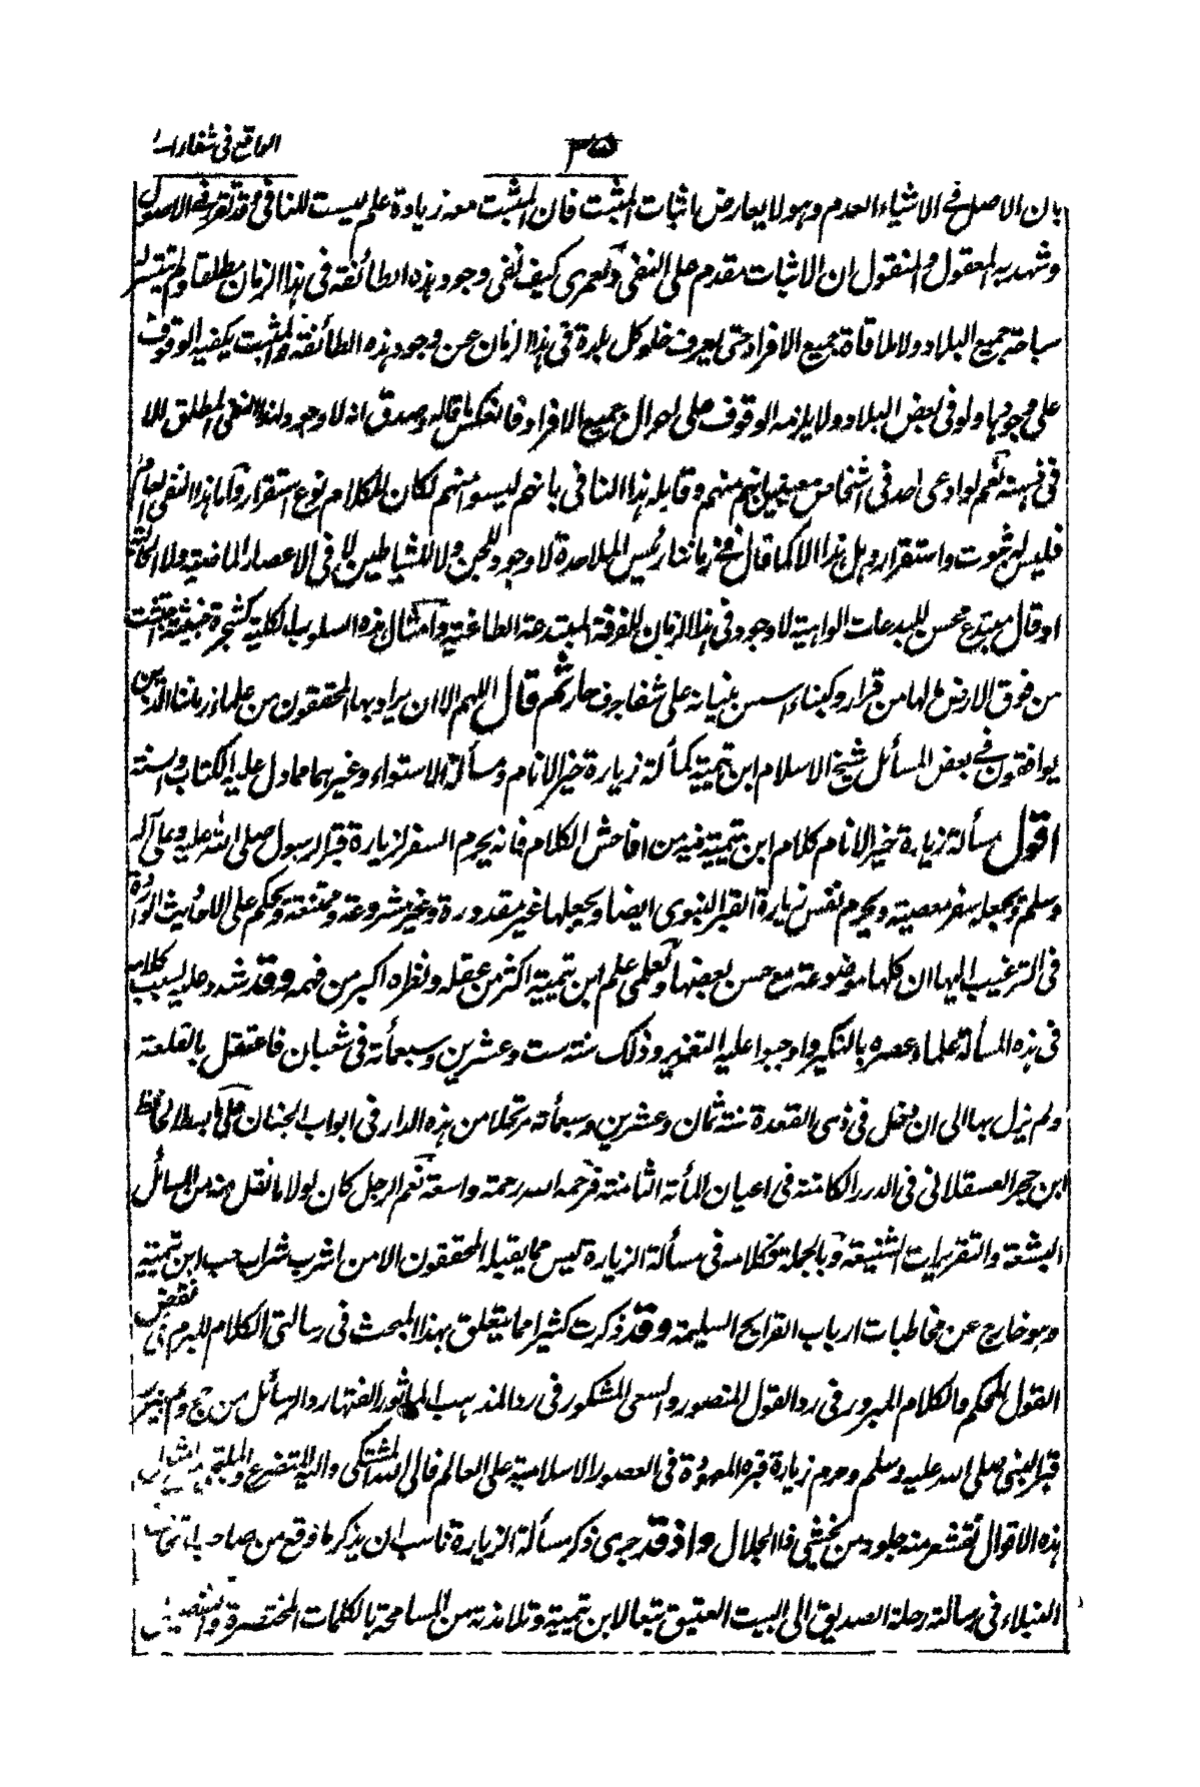 الواقع في شفاء
٣٥
بان الاصل في الاشياء العدم وهو لا يعارض باثبات المثبت فان المثبت معه زيادة علم ليست للنافي وقد تقرر في الاصول
وشهد به المعقول والمنقول ان الاثبات مقدم على النفي ولعمرى كيف نفى وجود هذه الطائفة في هذا الزمان مطلقا ولم تتيسر له
سياحة جميع البلاد ولا ملاقاة جميع الافراد حتى يعرف خلو كل بلدة في هذا الزمان عن وجود هذه الطائفة والمثبت يكفيه الوقوف
على وجودها ولو في بعض البلاد ولا يلزمه الوقوف على احوال جميع الافراد فانعكس ما قاله وصدق انه لا وجود لهذا النفى المطلق الا
في ذهنه نعم لو ادعى احد في اشخاص معينين انهم منهم وقابله هذا النافي بانهم ليسوا منهم لكان للكلام نوع استقرار واما هذا النفى العام
فليس له ثبوت واستقرار وهل هذا الا كما قال في زماننا رئيس الملاحدة لا وجود للجن ولا للشياطين لا في الاعصار الماضية ولا الحالية
او قال مبتدع محسن للبدعات الواهية لا وجود في هذا الزمان للفرقة المبتدعة الطاغية وامثال هذه السلوب الكلية كشجرة خبيثة اجتثت
من فوق الارض ما لها من قرار وكبناء اسس بنيانه على شفا جرف هار ثم قال اللهم الا ان يراد بها المحققون من علماء زماننا الذين
يوافقون في بعض المسائل شيخ الاسلام ابن تيمية كمسألة زيارة خير الانام ومسألة الاستواء وغيرهما مما دل عليه الكتاب والسنة
اقول مسألة زيارة خير الانام كلام ابن تيمية فيه من افاحش الكلام فانه يحرم السفر لزيارة قبر الرسول صلى الله عليه وعلى آله
وسلم ويجعله سفر معصية ويحرم نفس زيارة القبر النبوى ايضا ويجعلها غير مقدورة وغير مشروعة وممتنعة ويحكم على الاحاديث الواردة
في الترغيب اليها ان كلها موضوعة مع حسن بعضها ولعلمى علم ابن تيمية اكثر من عقله ونظره اكبر من فهمه وقد شدد عليه بسبب كلامه
في هذه المسألة علماء عصره بالنكير واوجبوا عليه التعزير وذلك سنة ست وعشرين وسبعمأة في شعبان فاعتقل بالقلعة
ولم يزل بها الى ان دخل في ذى القعدة سنة ثمان وعشرين وسبعمأة مرتحلا من هذه الدار في ابواب الجنان على ما بسطه الحافظ
ابن حجر العسقلاني في الدرر الكامنة في اعيان المأة الثامنة فرحمه الله رحمة واسعة نعم الرجل كان لولا ما نقل منه من المسائل
البشعة والتقريرات الشنيعة وبالجملة فكلامه في مسألة الزيارة ليس مما يقبله المحققون الا من اشرب شراب حب ابن تيمية
وهو خارج عن مخاطبات ارباب القرايح السليمة وقد ذكرت كثيرا مما يتعلق بهذا المبحث في رسالتى الكلام المبرم في نقض
القول المحكم والكلام المبرور في رد القول المنصور والسعى المشكور في رد المذهب المأثور الفتها ردا لرسائل من حج ولم يزر
قبر النبى صلى الله عليه وسلم وحرم زيارة قبره المعهودة في العصور الاسلامية على العالم فالى الله المشتكى واليه المتضرع والملتجى من امثال
هذه الاقوال تقشعر منه جلود من يخشى ذا الجلال واذ قد جرى ذكر مسألة الزيارة ناسب ان يذكر ما وقع من صاحب اتحاف
النبلاء في رسالته رحلة الصديق الى البيت العتيق تبعا لابن تيمية وتلامذته من المسامحة بالكلمات المختصرة